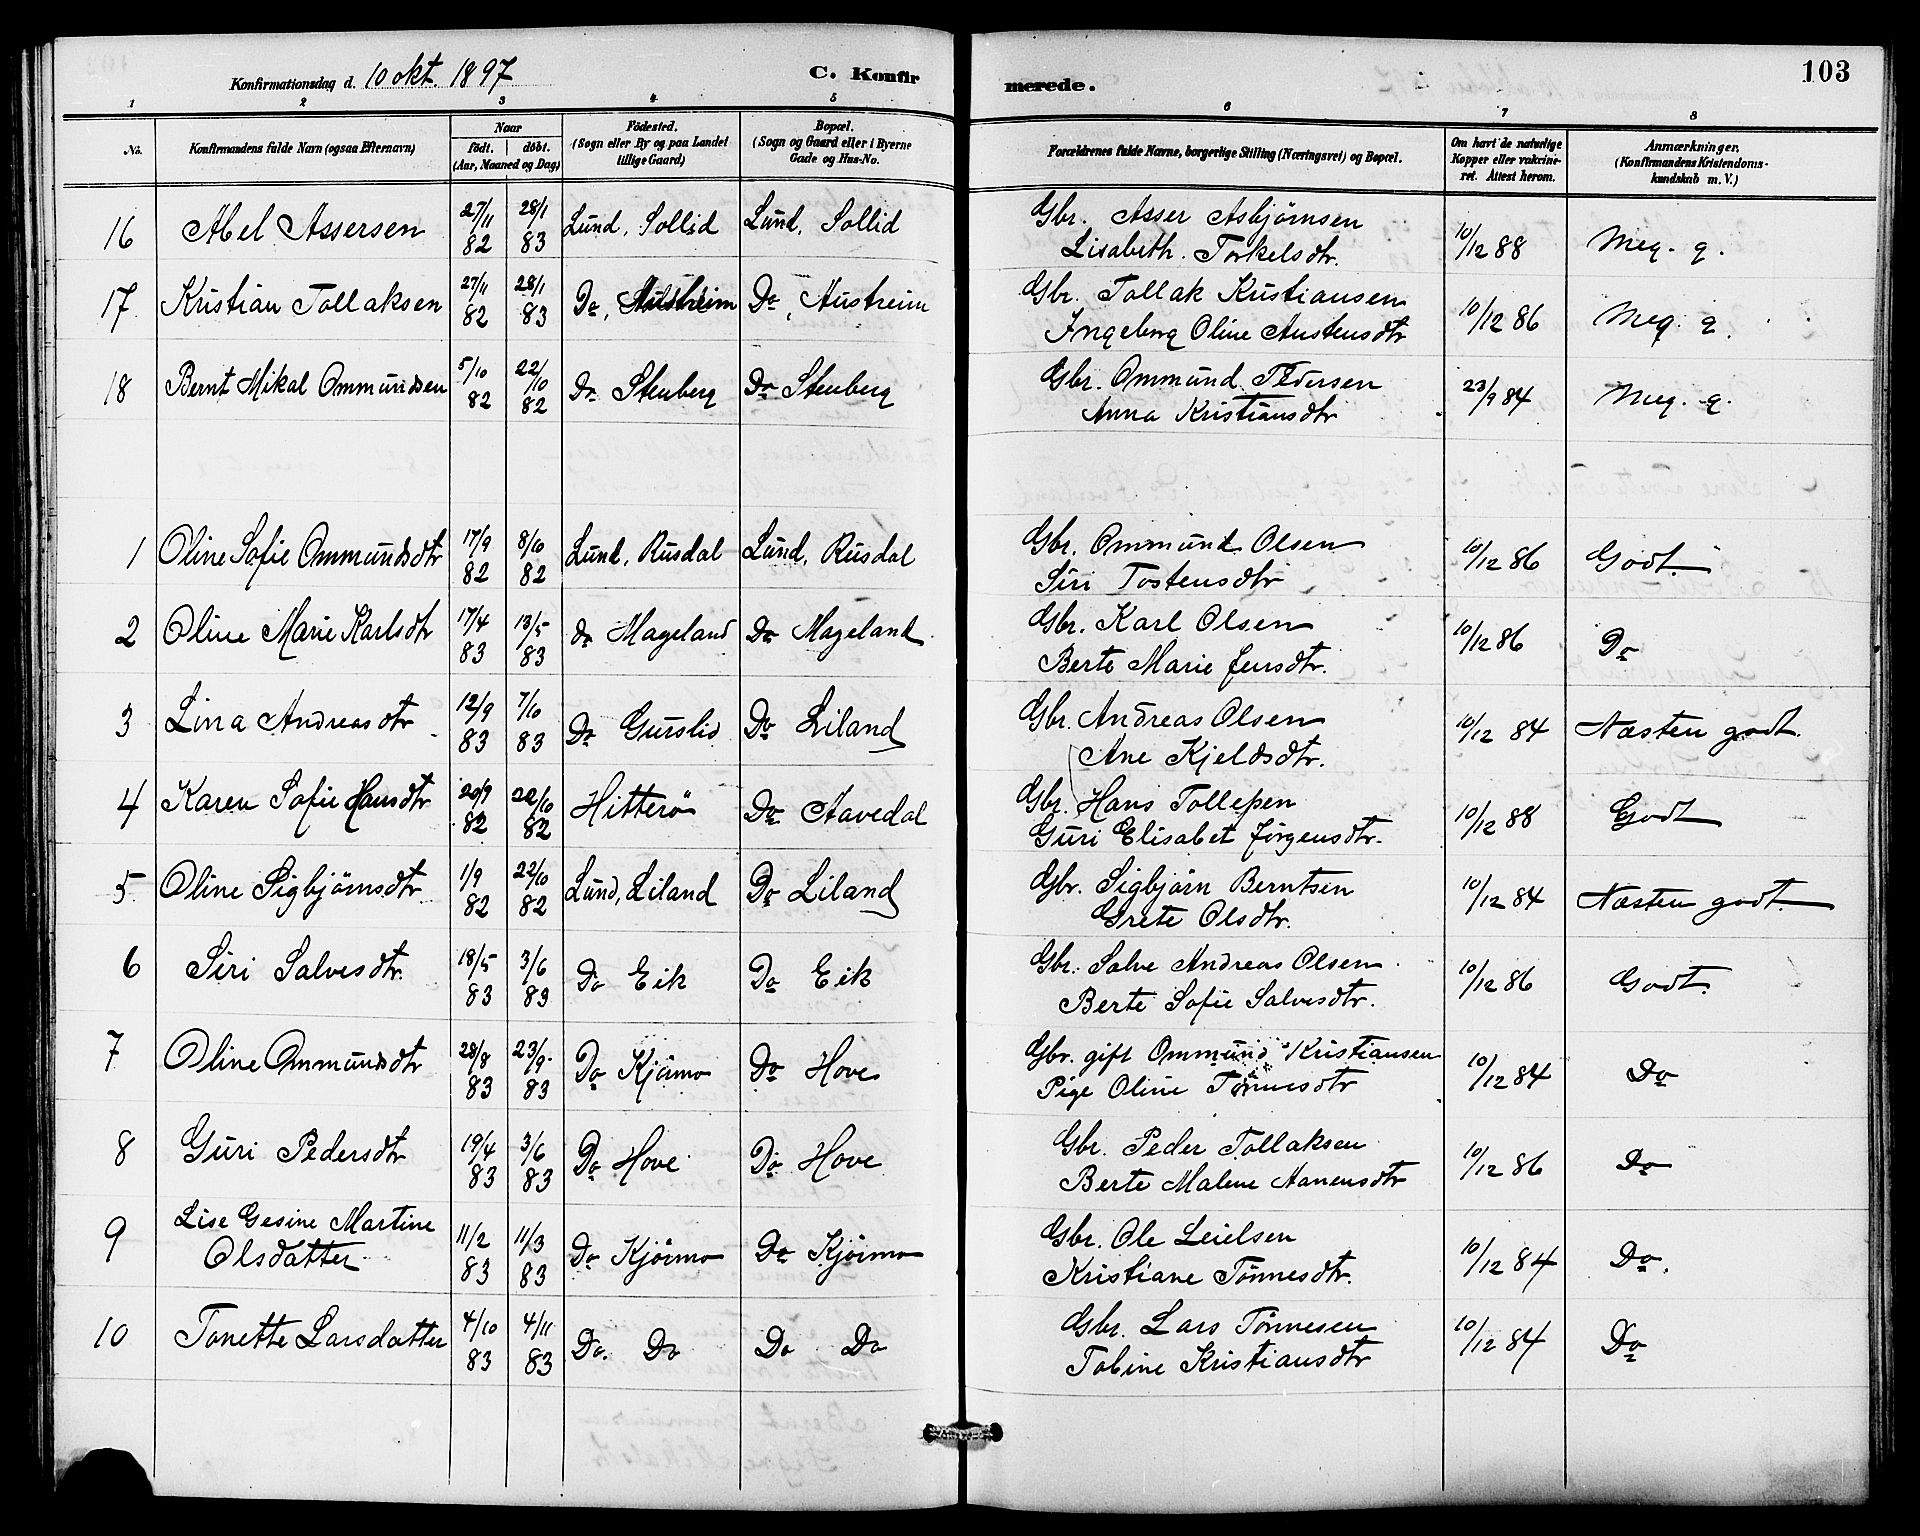 103
Konfirmationsdag d. 10 okt. 1897 C. Konfirmerede.
1 2 3 4 5 6 7 8
No. | Konfirmandens fulde Navn (ogsaa Efternavn) | Naar født. døbt. (Aar, Maaned og Dag) | Fødested. (Sogn eller By og paa Landet tillige Gaard) | Bopæl. (Sogn og Gaard eller i Byerne Gade og Hus-No. | Forældrenes fulde Navne, borgerlige Stilling (Næringsvei) og Bopæl. | Om havt de naturlige Kopper eller vakcineret. Attest herom. | Anmærkninger. (Konfirmandens Kristendomskundskab m. V.)
16 Abel Assersen 27/11 82 28/1 83 Lund, Sollid Lund, Sollid Gbr. Asser Asbjørnsen 10/12 88 Meg. g.
Lisabeth Torkelsdtr.
17 Kristian Tollaksen 27/11 82 28/1 83 Do, Austreim Do, Austreim Gbr. Tollak Kristiansen 10/12 86 Meg. g.
Ingeborg Oline Austensdtr
18 Bernt Mikal Ommundsen 5/10 82 22/10 82 Do Stenberg Do Stenberg Gbr. Ommund Pedersen 23/9 84 Meg. g.
Anna Kristiansdtr
1 Oline Sofie Ommundsdtr 17/9 82 8/10 82 Lund, Rusdal Lund, Rusdal Gbr. Ommund Olsen 10/12 86 Godt.
Siri Tostensdtr
2 Oline Marie Karlsdtr 17/4 83 13/5 83 do Mageland Do Mageland Gbr. Karl Olsen 10/12 86 Do
Berte Marie Jensdtr.
3 Lina Andreasdtr 12/9 83 7/10 83 Do Gurslid Do Liland Gbr. Andreas Olsen 10/12 84 Næsten godt.
Ane Kjeldsdtr.
4 Karen Sofie Hansdtr 20/9 82 22/10 82 Hitterö Do Aavedal Gbr. Hans Tollefsen 10/12 88 Godt
Guri Elisabet Jørgensdtr.
5 Oline Sigbjørnsdtr 1/9 82 22/10 82 Lund, Liland Do Liland Gbr. Sigbjørn Berntsen 10/12 84 Næsten godt.
Grete Olsdtr.
6 Siri Salvesdtr. 18/5 83 3/6 83 Do Eik Do Eik Gbr. Salve Andreas Olsen 10/12 86 Godt.
Berte Sofie Salvesdtr.
7 Oline Ommundsdtr 28/8 83 23/9 83 Do Kjörmo Do Hove Gbr. gift Ommund Kristiansen 10/12 84 Do
Pige Oline Tønnesdtr
8 Guri Pedersdtr 19/4 83 3/6 83 Do Hove Do Hove Gbr. Peder Tollaksen 10/12 86 Do
Berte Malene Aanensdtr
9 Lise Gesine Martine 11/2 83 11/3 83 Do Kjörmo Do Kjörmo Gbr. Ole Leielsen 10/12 84 Do.
Olsdatter Kristiane Tönnesdtr.
10 Tonette Larsdatter 4/10 83 4/11 83 Do. Do Do Do Gbr. Lars Tönnesen 10/12 84 Do
Tobine Kristiansdtr